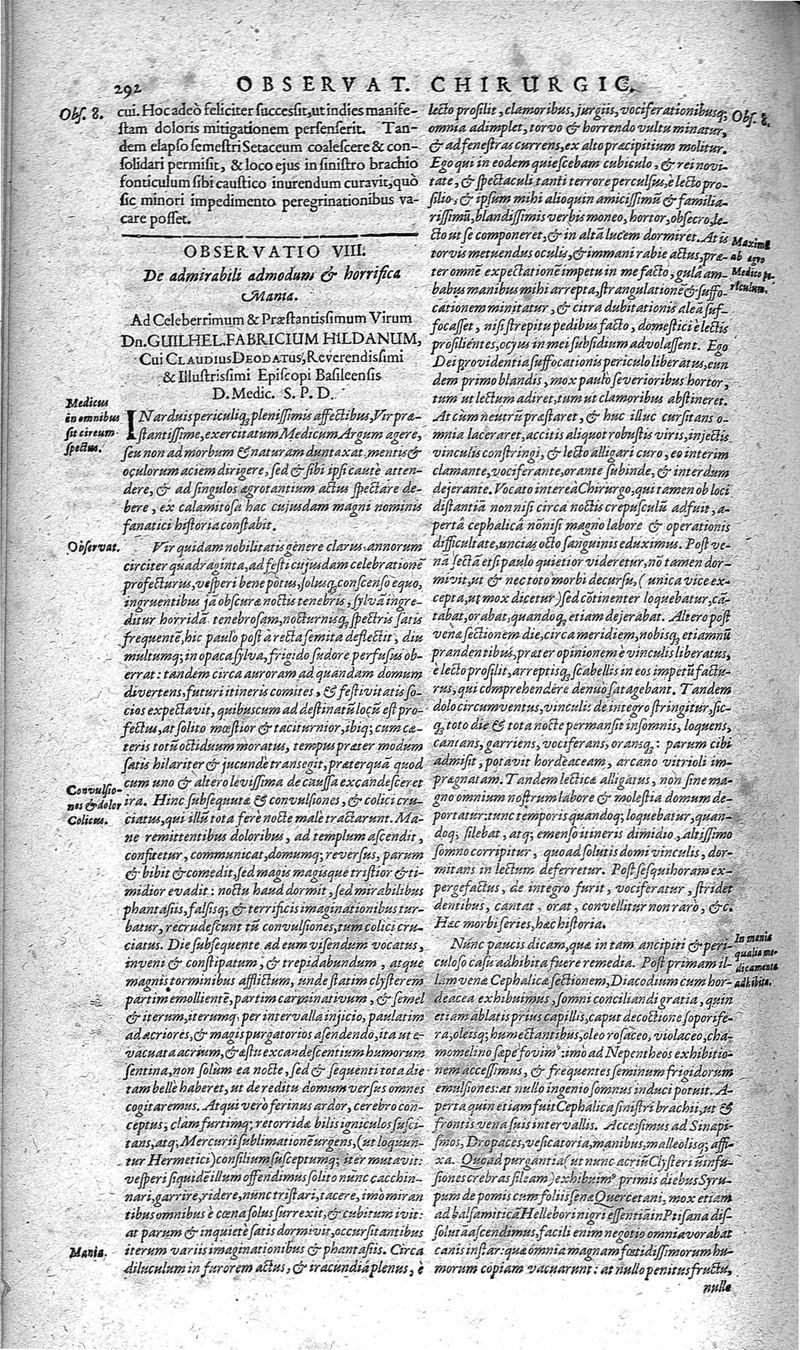 292 OBSERVAT. CHIRURGIC.
Obs. 8.
cui. Hoc adeò feliciter successit, ut indies manife-
stam doloris mitigationem persenserit. Tan-
dem elapso semestri Setaceum coalescere & con-
solidari permisit, & loco ejus in sinistro brachio
fonticulum sibi caustico inurendum curavit, quò
sic minori impedimento peregrinationibus va-
care posset.
OBSERVATIO VIII.
De admirabili admodum & horrifica
Mania.
Ad Celeberrimum & Præstantissimum Virum
Dn. GUILHEL. FABRICIUM HILDANUM,
Cui CLAUDIUS DEODATUS, Reverendissimi
& Illustrissimi Episcopi Basileensis
D. Medic. S. P. D.
Medicus
in omnibus
sit circum
spectus.
IN arduis periculiq; plenissimis affectibus, Vir præ-
stantissime, exercitatum Medicum Argum agere,
seu non ad morbum & naturam duntaxat, mentis &
oculorum aciem dirigere, sed & sibi ipsi cautè atten-
dere, & ad singulos ægrotantium actus spectare de-
bere, ex calamitosa hac cujusdam magni nominis
fanatici historia constabit.
Observat.
Vir quidam nobilitatis genere clarus, annorum
circiter quadraginta, ad festi cujusdam celebrationē
profecturus, vesperi bene potus, solusq; conscenso equo,
ingruentibus jā obscuræ noctis tenebris, sylvā ingre-
ditur horridā tenebrosam, nocturnisq; spectris satis
frequentē, hic paulo post à recta semita deflectit, diu
multumq; in opaca sylva, frigido sudore perfusus ob-
errat: tandem circa auroram ad quandam domum
divertens, futuri itineris comites, & festivitatis so-
cios expectavit, quibuscum ad destinatū locū est pro-
fectus, at solito mœstior & taciturnior, ibiq; cum cæ-
teris totū octiduum moratus, tempus præter modum
satis hilariter & jucunde transegit, præterquā quod
cum uno & altero levissima de caussa excandesceret
Convulsio-
nes & dolor
Colicus.
ira. Hinc subsequutæ & convulsiones, & colici cru-
ciatus, qui illū tota ferè nocte male tractarunt. Ma-
ne remittentibus doloribus, ad templum ascendit,
confitetur, communicat, domumq; reversus, parum
& bibit & comedit, sed magis magisque tristior & ti-
midior evadit: noctu haud dormit, sed mirabilibus
phantasiis, falsisq; & terrificis imaginationibus tur-
batur, recrudescunt tū convulsiones, tum colici cru-
ciatus. Die subsequente ad eum visendum vocatus,
inveni & constipatum, & trepidabundum, atque
magnis torminibus afflictum, unde statim clysterem
partim emollientē, partim carminativum, & semel
& iterum, iterumq; per intervalla injicio, paulatim
ad acriores, & magis purgatorios ascendendo, ita ut e-
vacuata acrium, & æstu excandescentium humorum
sentina, non solùm ea nocte, sed & sequenti tota die
tam bellè haberet, ut de reditu domum versus omnes
cogitaremus. Atqui vero ferinus ardor, cerebro con-
ceptus, clam furtimq; retorrida bilis igniculos susci-
tans, atq; Mercurii sublimationē urgens, (ut loquun-
tur Hermetici) consilium susceptumq; iter mutavit:
vesperi siquidē illum offendimus solito nunc cacchin-
nari, garrire, ridere, nunc tristari, tacere, imò miran
tibus omnibus è cœna solus surrexit, & cubitum ivit:
at parum & inquietè satis dormivit, occursitantibus
Mania.
iterum variis imaginationibus & phantasiis. Circa
diluculum in furorem actus, & iracundiā plenus, è
Obs. 8.
lecto prosilit, clamoribus, jurgiis, vociferationibusq;
omnia adimplet, torvo & horrendo vultu minatur,
& ad fenestras currens, ex alto præcipitium molitur.
Ego qui in eodem quiescebam cubiculo, & rei novi-
tate, & spectaculi tanti terrore perculsus, è lecto pro-
silio, & ipsum mihi alioquin amicissimū & familia-
rissimū, blandissimis verbis moneo, hortor, obsecro, le-
cto ut se componeret, & in altā lucem dormiret. At is
Maxime
ab ægro
Medico pe-
riculum.
torvis metuendus oculis, & immani rabie actus, præ-
ter omnē expectationē impetu in me facto, gulā am-
babus manibus mihi arrepta, strangulationē & suffo-
cationem minitatur, & citra dubitationis aleā suf-
focasset, nisi strepitu pedibus facto, domestici è lectis
prosilientes, ocyus in mei subsidium advolassent. Ego
Dei providentia suffocationis periculo liberatus, eun
dem primo blandis, mox paulo severioribus hortor,
tum ut lectum adiret, tum ut clamoribus abstineret.
At cum neutrū præstaret, & huc illuc cursitans o-
mnia laceraret, accitis aliquot robustis viris, injectis
vinculis constringi, & lecto alligari curo, eo interim
clamante, vociferante, orante subinde, & interdum
dejerante. Vocato intereà Chirurgo, qui tamen ob loci
distantiā non nisi circa noctis crepusculū adfuit, a-
pertâ cephalicâ nonisi magno labore & operationis
difficultate, uncias octo sanguinis eduximus. Post ve-
nā sectā etsi paulo quietior videretur, nō tamen dor-
mivit, ut & nec toto morbi decursu, (unica vice ex-
cepta, ut mox dicetur) sed cōtinenter loquebatur, cā-
tabat, orabat, quandoq; etiam dejerabat. Altero post
venæ sectionem die, circa meridiem, nobisq; etiamnū
prandentibus, præter opinionem è vinculis liberatus,
è lecto prosilit, arreptisq; scabellis in eos impetū factu-
rus, qui comprehendere denuò satagebant. Tandem
dolo circumventus, vinculis de integro stringitur, sic-
q; toto die & tota nocte permansit insomnis, loquens,
cantans, garriens, vociferans, oransq;: parum cibi
admisit, potavit hordeaceam, arcano vitrioli im-
prægnatam. Tandem lecticæ alligatus, non sine ma-
gno omnium nostrum labore & molestia domum de-
portatur: tunc temporis quandoq; loquebatur, quan-
doq; silebat, atq; emenso itineris dimidio, altissimo
somno corripitur, quoad solutis domi vinculis, dor-
mitans in lectum deferretur. Post sesquihoram ex-
pergefactus, de integro furit, vociferatur, stridet
dentibus, cantat, orat, convellitur non rarò, &c.
Hæc morbi series, hæc historia.
In mania
qualia me-
dicamenta
adhibita.
Nūc paucis dicam, quæ in tam ancipiti & peri-
culoso casu adhibita fuere remedia. Post primam il-
lam venæ Cephalicæ sectionem, Diacodium cum hor-
deacea exhibuimus, somni conciliandi gratia, quin
etiam ablatis prius capillis, caput decoctione soporife-
ra, oleisq; humectantibus, oleo rosaceo, violaceo, cha-
momelino sæpe fovimꝰ: imò ad Nepentheos exhibitio-
nem accessimus, & frequentes seminum frigidorum
emulsiones: at nullo ingenio somnus induci potuit. A-
perta quin etiam fuit Cephalica sinistri brachii, ut &
frontis vena suis intervallis. Accessimus ad Sinapi-
smos, Dropaces, vesicatoria, manibus, malleolisq; affi-
xa. Quoad purgantia (ut nunc acriū Clysteriū infu-
siones crebras sileam) exhibuimꝰ primis diebus Syru-
pum de pomis cum foliis senæ Quercetani, mox etiam
ad balsamiticā Hellebori nigri essentiā in Ptisana dis-
soluta ascendimus, facili enim negotio omnia vorabat
canis instar: quæ omnia magnam fœtidissimorum hu-
morum copiam vacuarunt: at nullo penitus fructu,
nulle